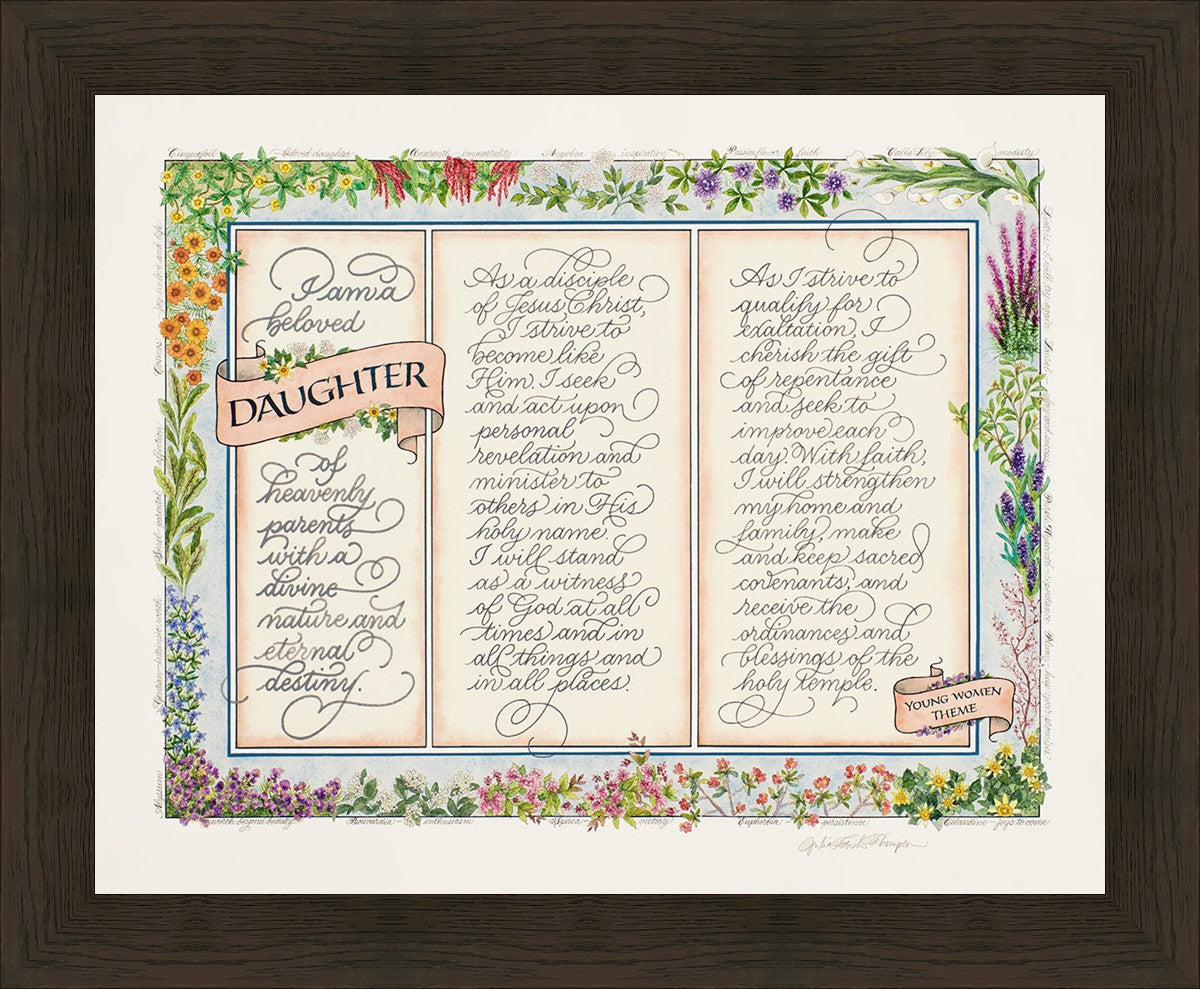 Cinquefoil – beloved daughter Amaranth – immortality Angelica – inspiration Passionflower – faith Calla Lily – modesty
I am a
beloved
DAUGHTER
of
heavenly
parents
with a
divine
nature and
eternal
destiny.
As a disciple
of Jesus Christ,
I strive to
become like
Him. I seek
and act upon
personal
revelation and
minister to
others in His
holy name.
I will stand
as a witness
of God at all
times and in
all things and
in all places.
As I strive to
qualify for
exaltation, I
cherish the gift
of repentance
and seek to
improve each
day. With faith,
I will strengthen
my home and
family, make
and keep sacred
covenants, and
receive the
ordinances and
blessings of the
holy temple.
YOUNG WOMEN
THEME
Sorel – parental affection
Alyssum – worth beyond beauty Bouvardia – enthusiasm Spirea – victory Euphorbia – persistence Celandine – joys to come